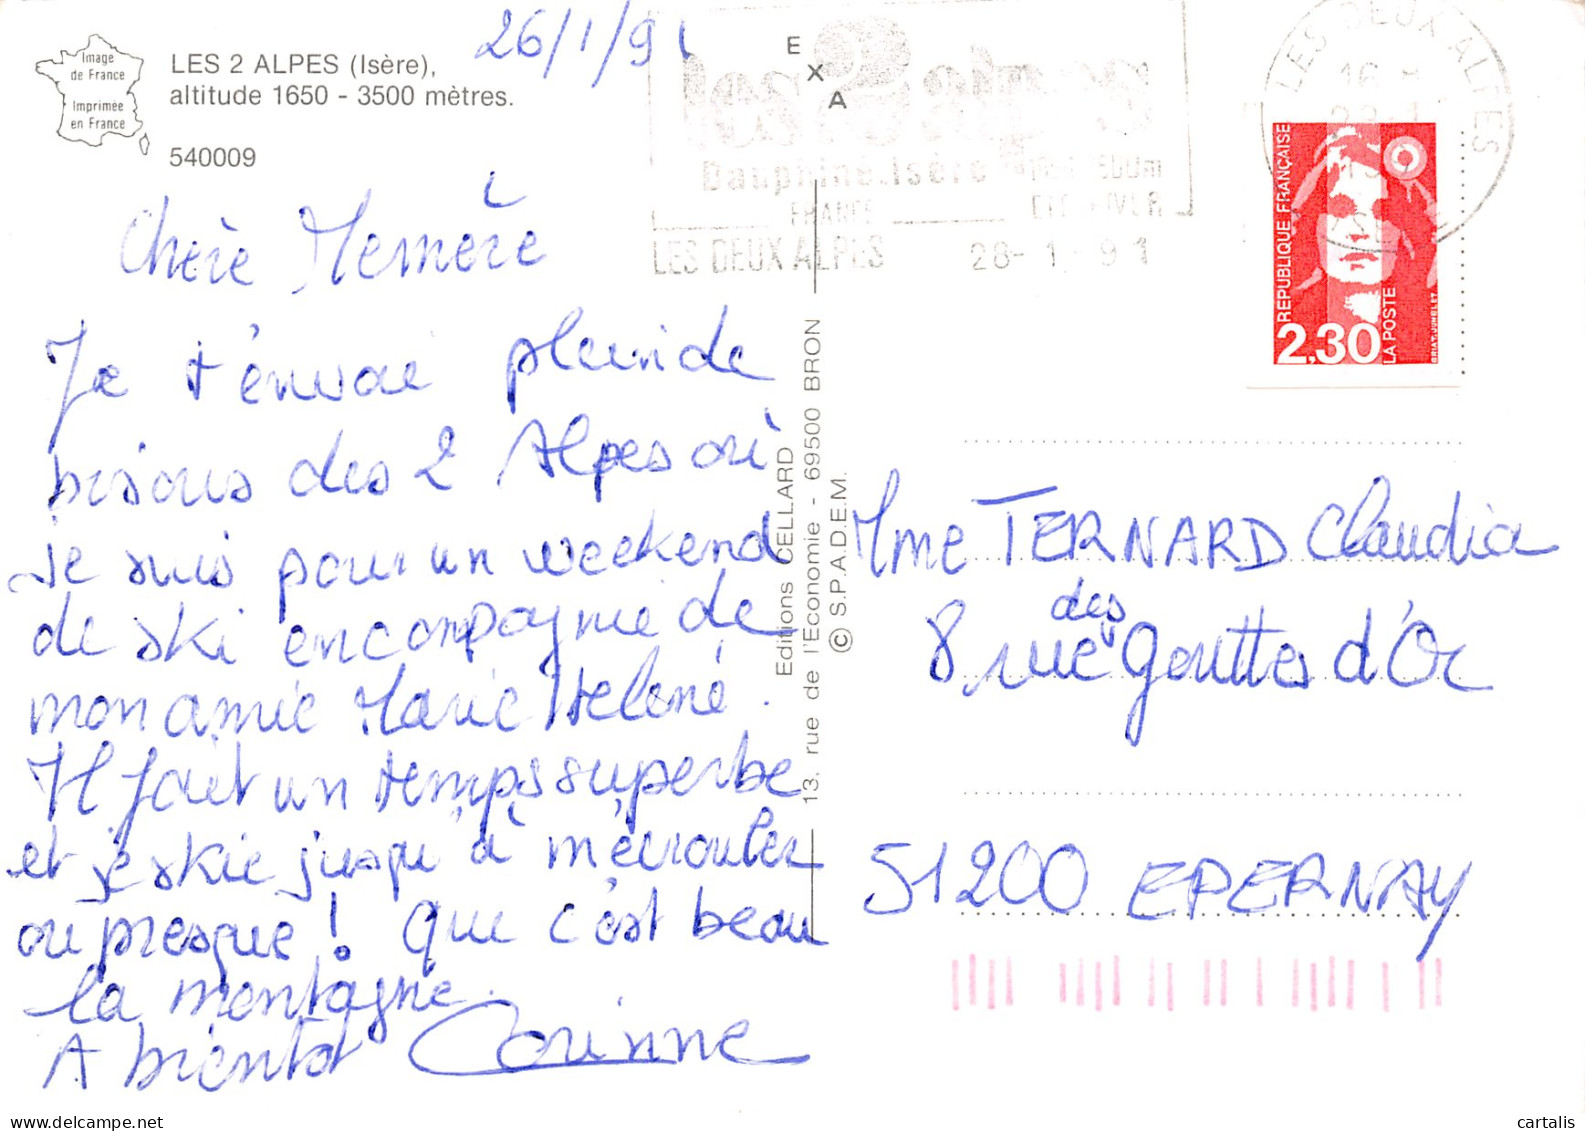 Image
de France
Imprimée
en France
LES 2 ALPES (Isère),
altitude 1650 - 3500 mètres.
540009
26/1/91
E
X
A
les 2 alpes
Dauphiné.Isère
FRANCE
LES DEUX ALPES 28-1-91
LES DEUX ALPES
16 H
28-1
REPUBLIQUE FRANÇAISE
2,30
LA POSTE
BRIAT-JUMELET
Chère Mémère
Je t'envoie plein de
bisous des 2 Alpes où
je suis pour un weekend
de ski en compagnie de
mon amie Marie Hélène.
Il fait un temps superbe
et je skie jusqu'à m'écrouler
ou presque ! Que c'est beau
la montagne.
A bientôt Corinne
Editions CELLARD
13, rue de l'Economie - 69500 BRON
© S.P.A.D.E.M.
Mme TERNARD Claudia
8 rue des Gouttes d'Or
51200 EPERNAY